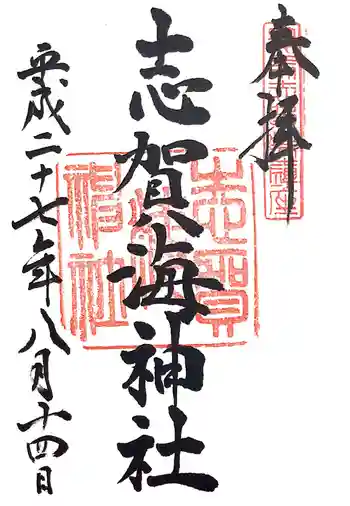 奉拝
志賀海神社
平成二十七年八月十四日
志賀海神社